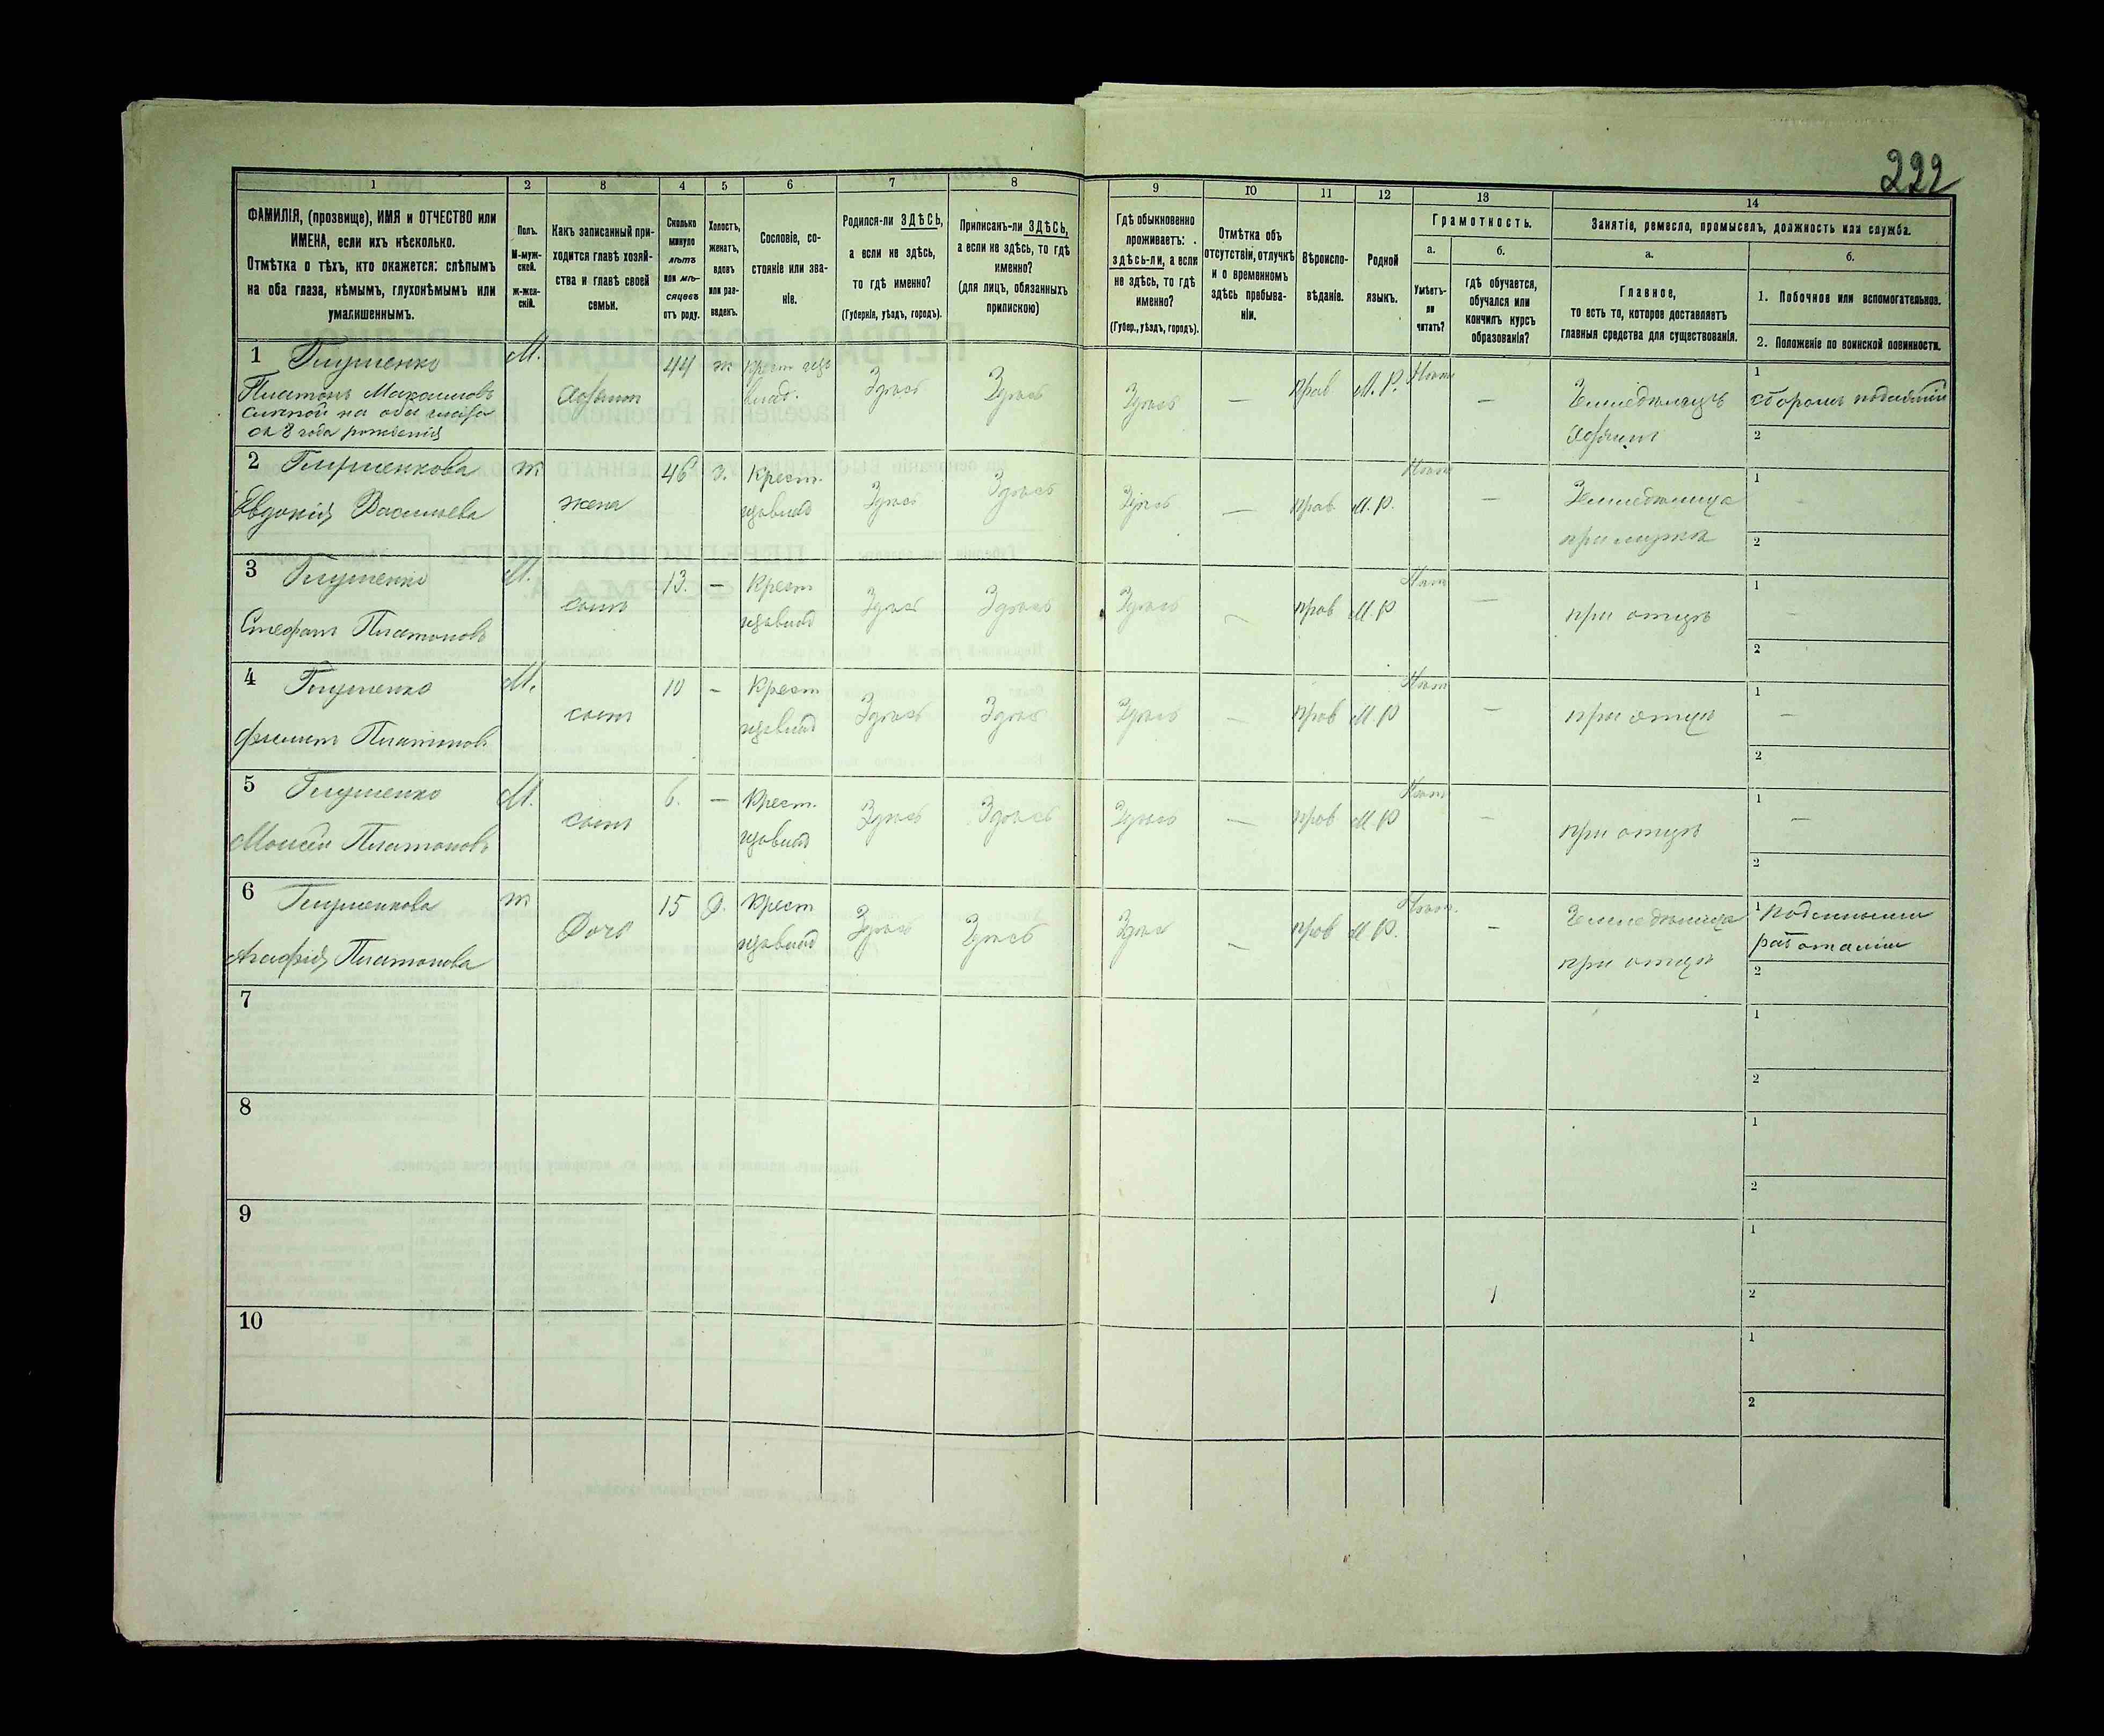 222
1
2
3
4
5
6
7
8
9
10
11
12
13
14
ФАМИЛІЯ, (прозвище), ИМЯ и ОТЧЕСТВО или
ИМЕНА, если ихъ нѣсколько.
Отмѣтка о тѣхъ, кто окажется: слѣпымъ
на оба глаза, нѣмымъ, глухонѣмымъ или
умалишеннымъ.
Полъ.
М-муж-
ской.
ж-жен-
скій.
Какъ записанный при-
ходится главѣ хозяй-
ства и главѣ своей
семьи.
Сколько
минуло
лѣтъ
или мѣ-
сяцевъ
отъ роду.
Холостъ,
женатъ,
вдовъ
или раз-
веденъ.
Сословіе, со-
стояніе или зва-
ніе.
Родился-ли ЗДѢСЬ,
а если не здѣсь,
то гдѣ именно?
(Губернія, уѣздъ, городъ).
Приписанъ-ли ЗДѢСЬ,
а если не здѣсь, то гдѣ
именно?
(для лицъ, обязанныхъ
припискою)
Гдѣ обыкновенно
проживаетъ:
здѣсь-ли, а если
не здѣсь, то гдѣ
именно?
(Губер., уѣздъ, городъ).
Отмѣтка объ
отсутствіи, отлучкѣ
и о временномъ
здѣсь пребыва-
ніи.
Вѣроиспо-
вѣданіе.
Родной
языкъ.
Грамотность.
а.
Умѣетъ-
ли
читать?
б.
гдѣ обучается,
обучался или
кончилъ курсъ
образованія?
Занятіе, ремесло, промыселъ, должность или служба.
а.
Главное,
то есть то, которое доставляетъ
главныя средства для существованія.
б.
1. Побочное или вспомогательное.
2. Положеніе по воинской повинности.
1 Глушенко М. 44 ж
Платонъ Максимовъ Здѣсь Здѣсь Здѣсь — прав М.Р. Нѣтъ —
слѣпой на оба глаза
съ 8 года рожденія
Земледѣлецъ
1
2
2 Глушенкова ж 46 з. Крест.
Евдокія Васильева жена Здѣсь Здѣсь Здѣсь — прав М.Р. Нѣтъ —
Земледѣлица
при мужѣ
1 —
2
3 Глушенко М. 13. — Крест
Стефанъ Платоновъ сынъ Здѣсь Здѣсь Здѣсь — прав М.Р Нѣтъ —
при отцѣ
1 —
2
4 Глушенко М. 10 — Крест
Платоновъ сынъ Здѣсь Здѣсь Здѣсь — прав М.Р Нѣтъ —
при отцѣ
1 —
2
5 Глушенко М. 6. — Крест.
Моисей Платоновъ сынъ Здѣсь Здѣсь Здѣсь — прав М.Р Нѣтъ —
при отцѣ
1 —
2
6 Глушенкова ж 15 д. Крест
Агафія Платонова Дочь Здѣсь Здѣсь Здѣсь — прав М.Р. Нѣтъ. —
Земледѣлица
при отцѣ
1
2
7
1
2
8
1
2
9
1
2
10
1
2